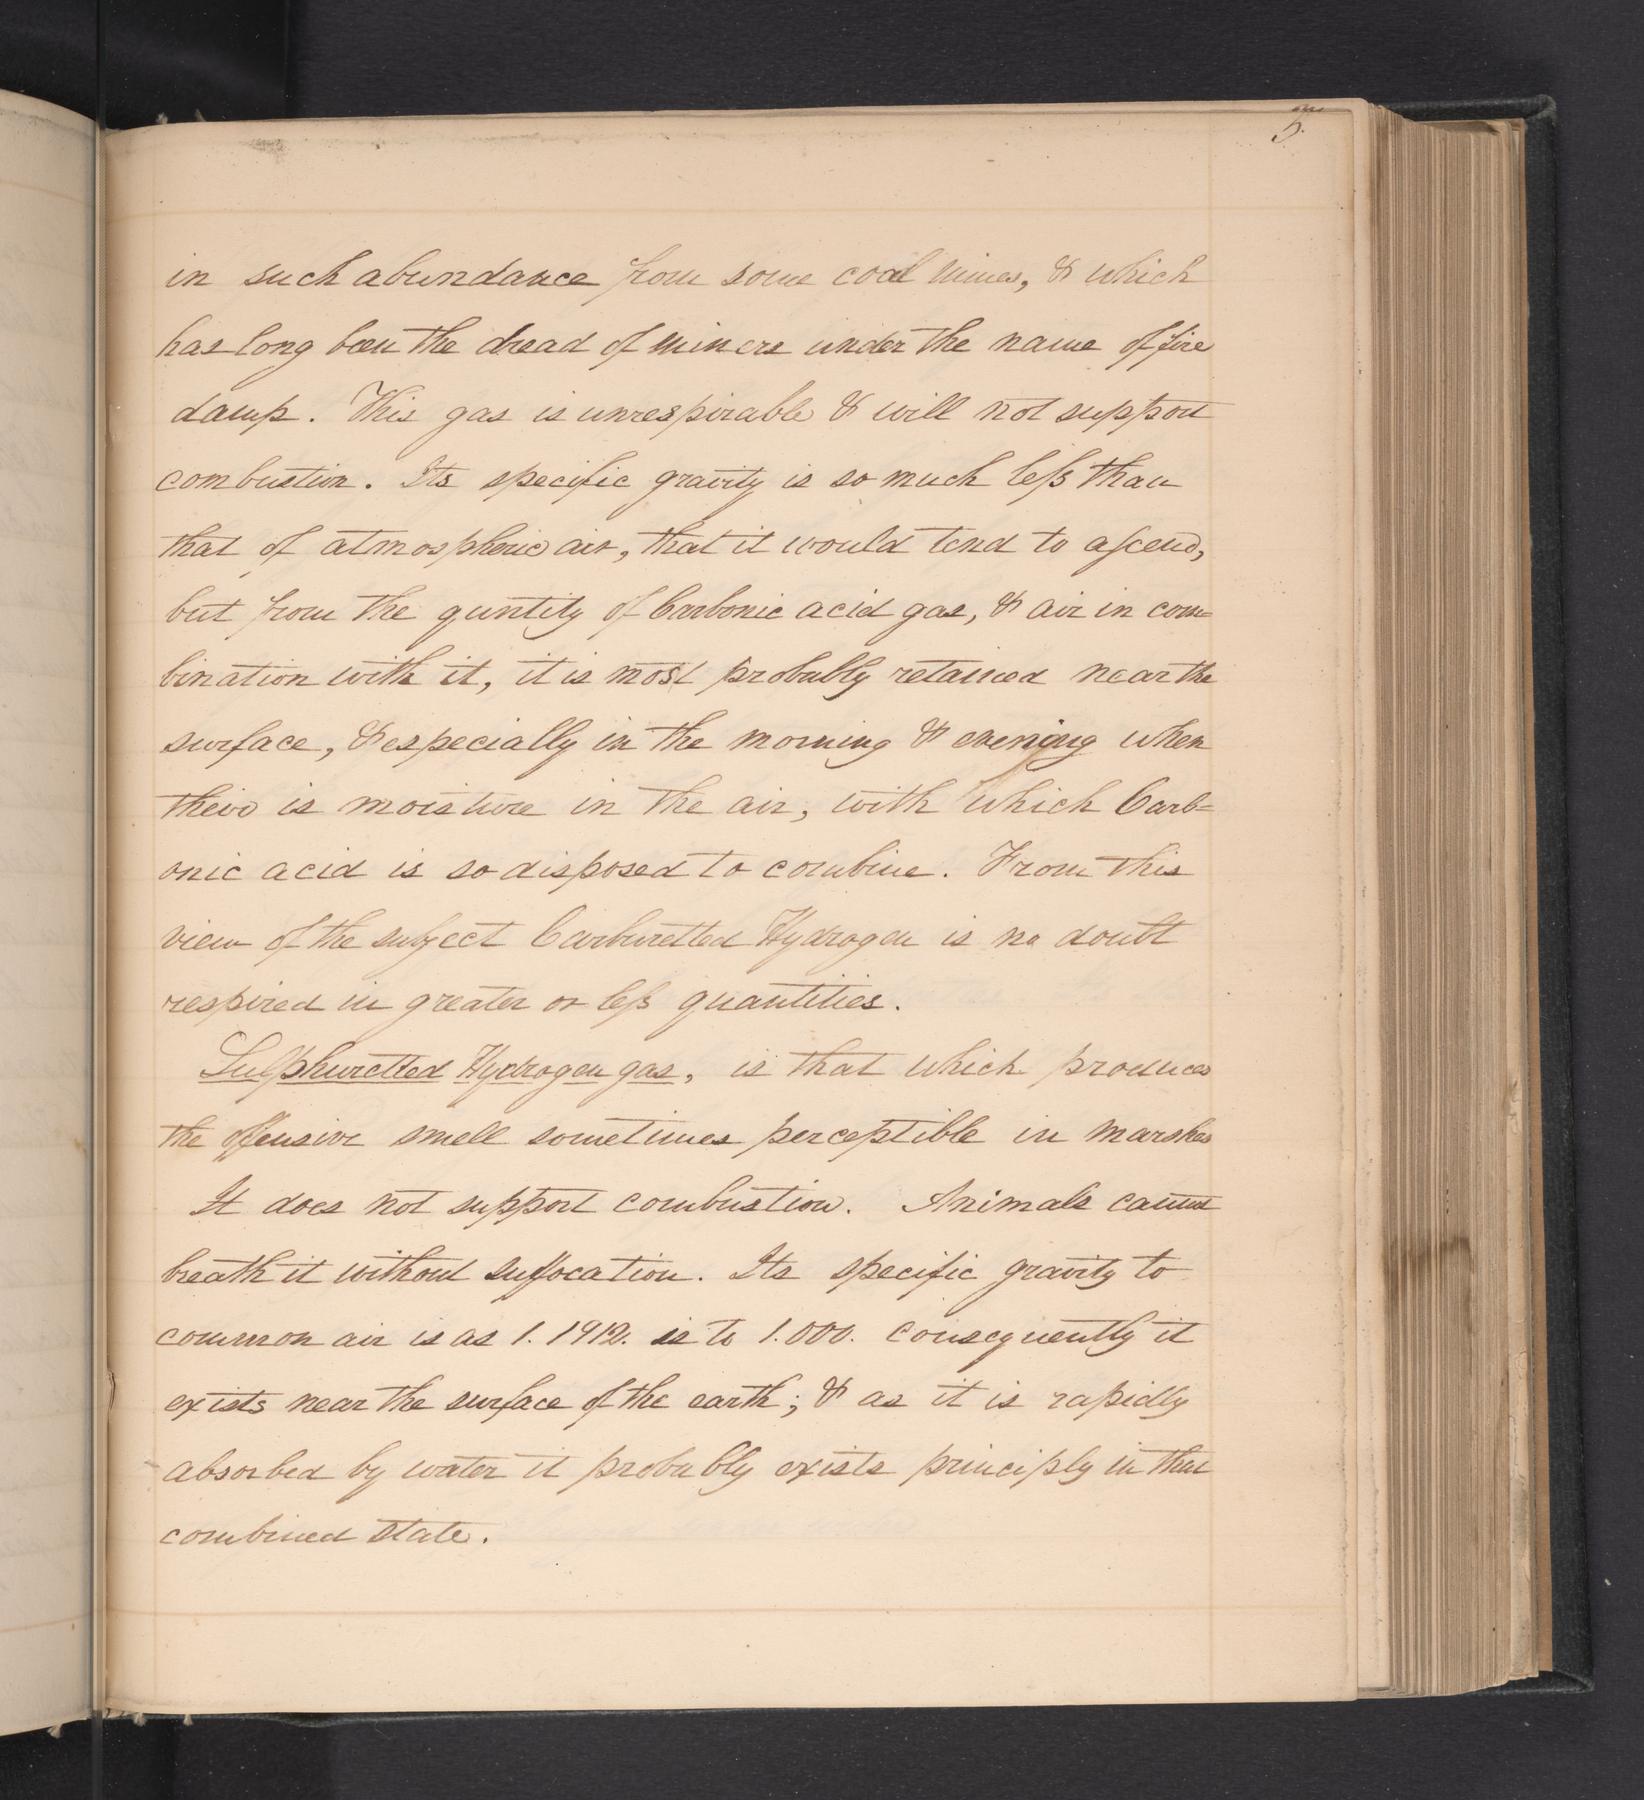 5.
in such abundance from some coal mines, & which
has long been the dread of miners under the name of fire
damp. This gas is unrespirable & will not support
combustion. Its specific gravity is so much less than
that of atmospheric air, that it would tend to ascend,
but from the quntity of Carbonic acid gas, & air in com=
bination with it, it is most probably retained near the
surface, & especially in the morning & evening when
their is moisture in the air, with which Carb=
onic acid is so disposed to combine. From this
view of the subject Carburetted Hydrogen is no doubt
respired in greater or less quantities.
Sulphuretted Hydrogen gas, is that which produces
the offensive smell sometimes perceptible in marshes
It does not support combustion. Animals cannot
breath it without suffocation. Its specific gravity to
common air is as 1.1912. is to 1.000. Consequently it
exists near the surface of the earth; & as it is rapidly
absorbed by water it probably exists principly in that
combined state.